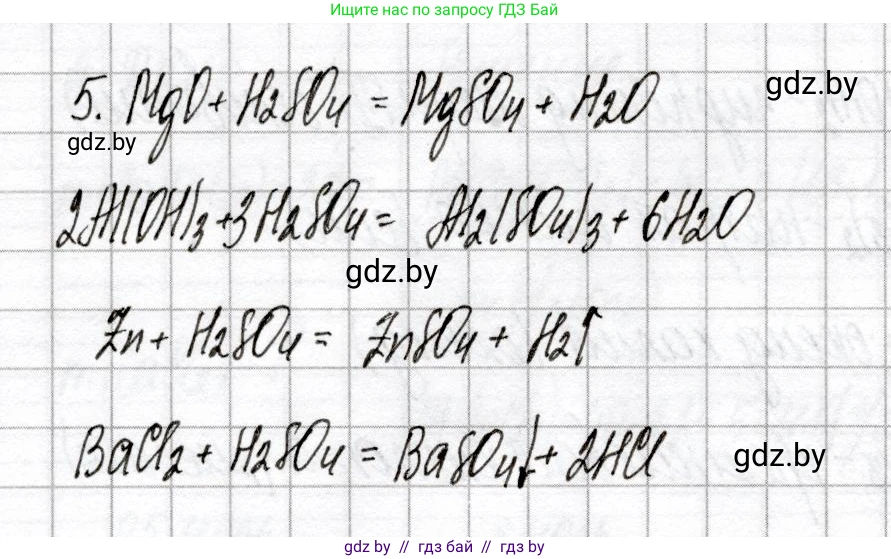 Ищите нас по запросу ГДЗ Бай
5. MgO + H2SO4 = MgSO4 + H2O
gdz.by
gdz.by
2Al(OH)3 + 3H2SO4 = Al2(SO4)3 + 6H2O
gdz.by
Zn + H2SO4 = ZnSO4 + H2↑
BaCl2 + H2SO4 = BaSO4↓ + 2HCl
gdz.by
gdz by // гдз бай // гдз by